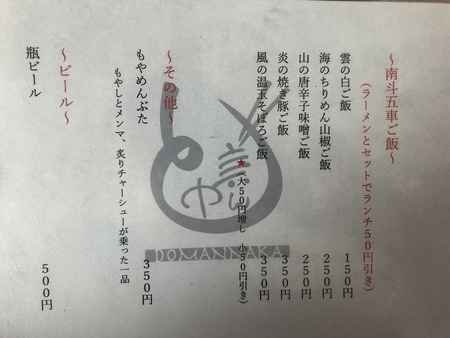 ～南斗五車ご飯～
（ラーメンとセットでランチ50円引き）
雲の白ご飯 150円
海のちりめん山椒ご飯 250円
山の唐辛子味噌ご飯 250円
炎の焼き豚ご飯 350円
風の温玉そぼろご飯 350円
★（大50円増し 小50円引き）
～その他～
もやめんぶた 350円
もやしとメンマ、炙りチャーシューが乗った一品
～ビール～
瓶ビール 500円
DOMANNAKA